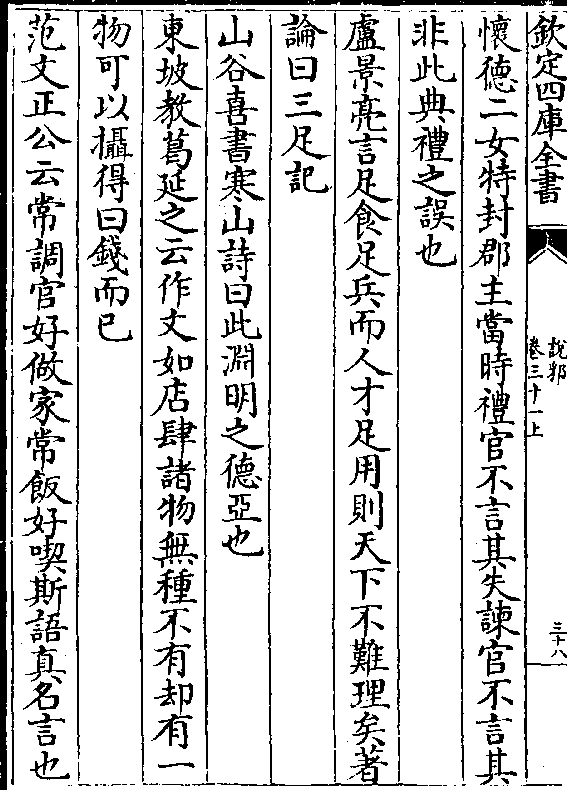 欽定四庫全書
說郛
卷三十一上
三十八
懷德二女特封郡主當時禮官不言其失諫官不言其
非此典禮之誤也
盧景亮言足食足兵而人才足用則天下不難理矣著
論曰三足記
山谷喜書寒山詩曰此淵明之德亞也
東坡教葛延之云作文如店肆諸物無種不有却有一
物可以攝得曰錢而已
范文正公云常調官好做家常飯好喫斯語真名言也